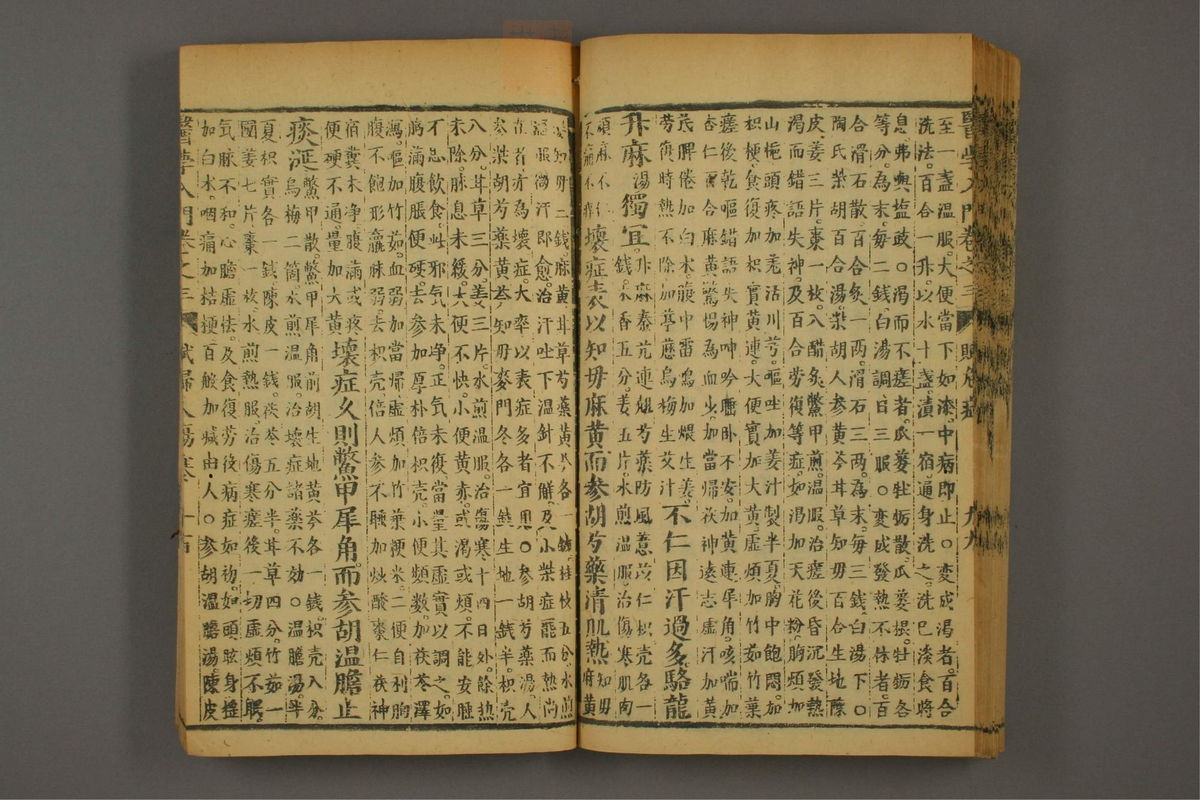 醫學入門卷之三
至一盞溫服。大便當下如漆。中病即止。○變成渴者。百合
洗法。百合一升。以水十盞。漬一宿。通身洗之。洗已淡食。將
息弗與鹽豉。○渴而不瘥者。瓜蔞牡蠣散。瓜蔞根牡蠣各
等分。為末。每二錢。白湯調。日三服。○變成發熱不休者。百
合滑石散。百合炙一兩。滑石三兩。為末。每三錢。白湯下。○
陶氏柴胡百合湯。柴胡人參黃芩甘草知母百合生地陳
皮。姜三片。棗一枚。入醋炙鱉甲煎。溫服。治瘥後昏沉發熱
渴而錯語失神。及百合勞復等症。如渴加天花粉。胸煩加
山梔。頭疼加羌活川芎。嘔吐加姜汁製半夏。胸中飽悶。加
枳梗。食復加枳實黃連。大便實加大黃。虛煩加竹茹竹葉
瘥後乾嘔錯語失神呻吟睡臥不安。加黃連犀角。咳喘加
杏仁百合麻黃。驚惕為血少。加當歸茯神遠志。虛汗加黃
芪。脾倦加白朮。腹中雷鳴。加煨生姜。不仁因汗過多駱龍
勞復時熱不除。加葶藶烏梅生艾汁
升麻湯獨宜。升麻秦艽連翹芍藥防風薏苡仁枳殼各一
錢。木香五分。姜五片。水煎溫服。治傷寒肌肉
壞症表以知母麻黃而參胡芍藥清肌熱知母麻黃
知母二錢。麻黃甘草芍藥黃芩各一錢。桂枝五分。水煎
溫服微汗即愈。治汗吐下溫針不解。及小柴症罷而熱尚
在者。亦為壞症。大率以表症多者宜用。○參胡芍藥湯。人
參柴胡芍藥黃芩知母麥門冬各一錢。生地一錢半。枳殼
八分。甘草三分。姜三片。水煎溫服。治傷寒十四日外。餘熱
未除。脉息未緩。大便不快。小便黃赤。或渴或煩。不能安睡
不思飲食。此邪氣未淨。正氣未復。當量其虛實以調之。如
胸滿腹脹便硬。去參加厚朴倍枳殼。小便頻數。加茯苓澤
瀉。嘔加竹茹。血弱加當歸。虛煩加竹葉粳米。二便自利。胸
腹不飽。形羸脉弱。去枳殼倍人參。不睡加炒酸棗仁茯神
宿糞未淨。腹滿或疼。便硬不通。量加大黃壞症久則鱉甲犀角而參胡溫膽止
痰涎鱉甲散。鱉甲犀角前胡生地黃芩各一錢。枳殼八分。
烏梅二箇。水煎溫服。治壞症諸藥不効。○溫膽湯。半
夏枳實各一錢。陳皮一錢。茯苓五分半。甘草四分。竹茹一
團。姜七片。棗一枚。水煎熱服。治傷寒瘥後。一切虛煩不眠
氣脉不和。心膽虛怯。及食復勞後病症如初。如頭眩身搖
加白朮。咽痛加桔梗。百般加減由人。○參胡溫膽湯。陳皮
醫學入門卷之三